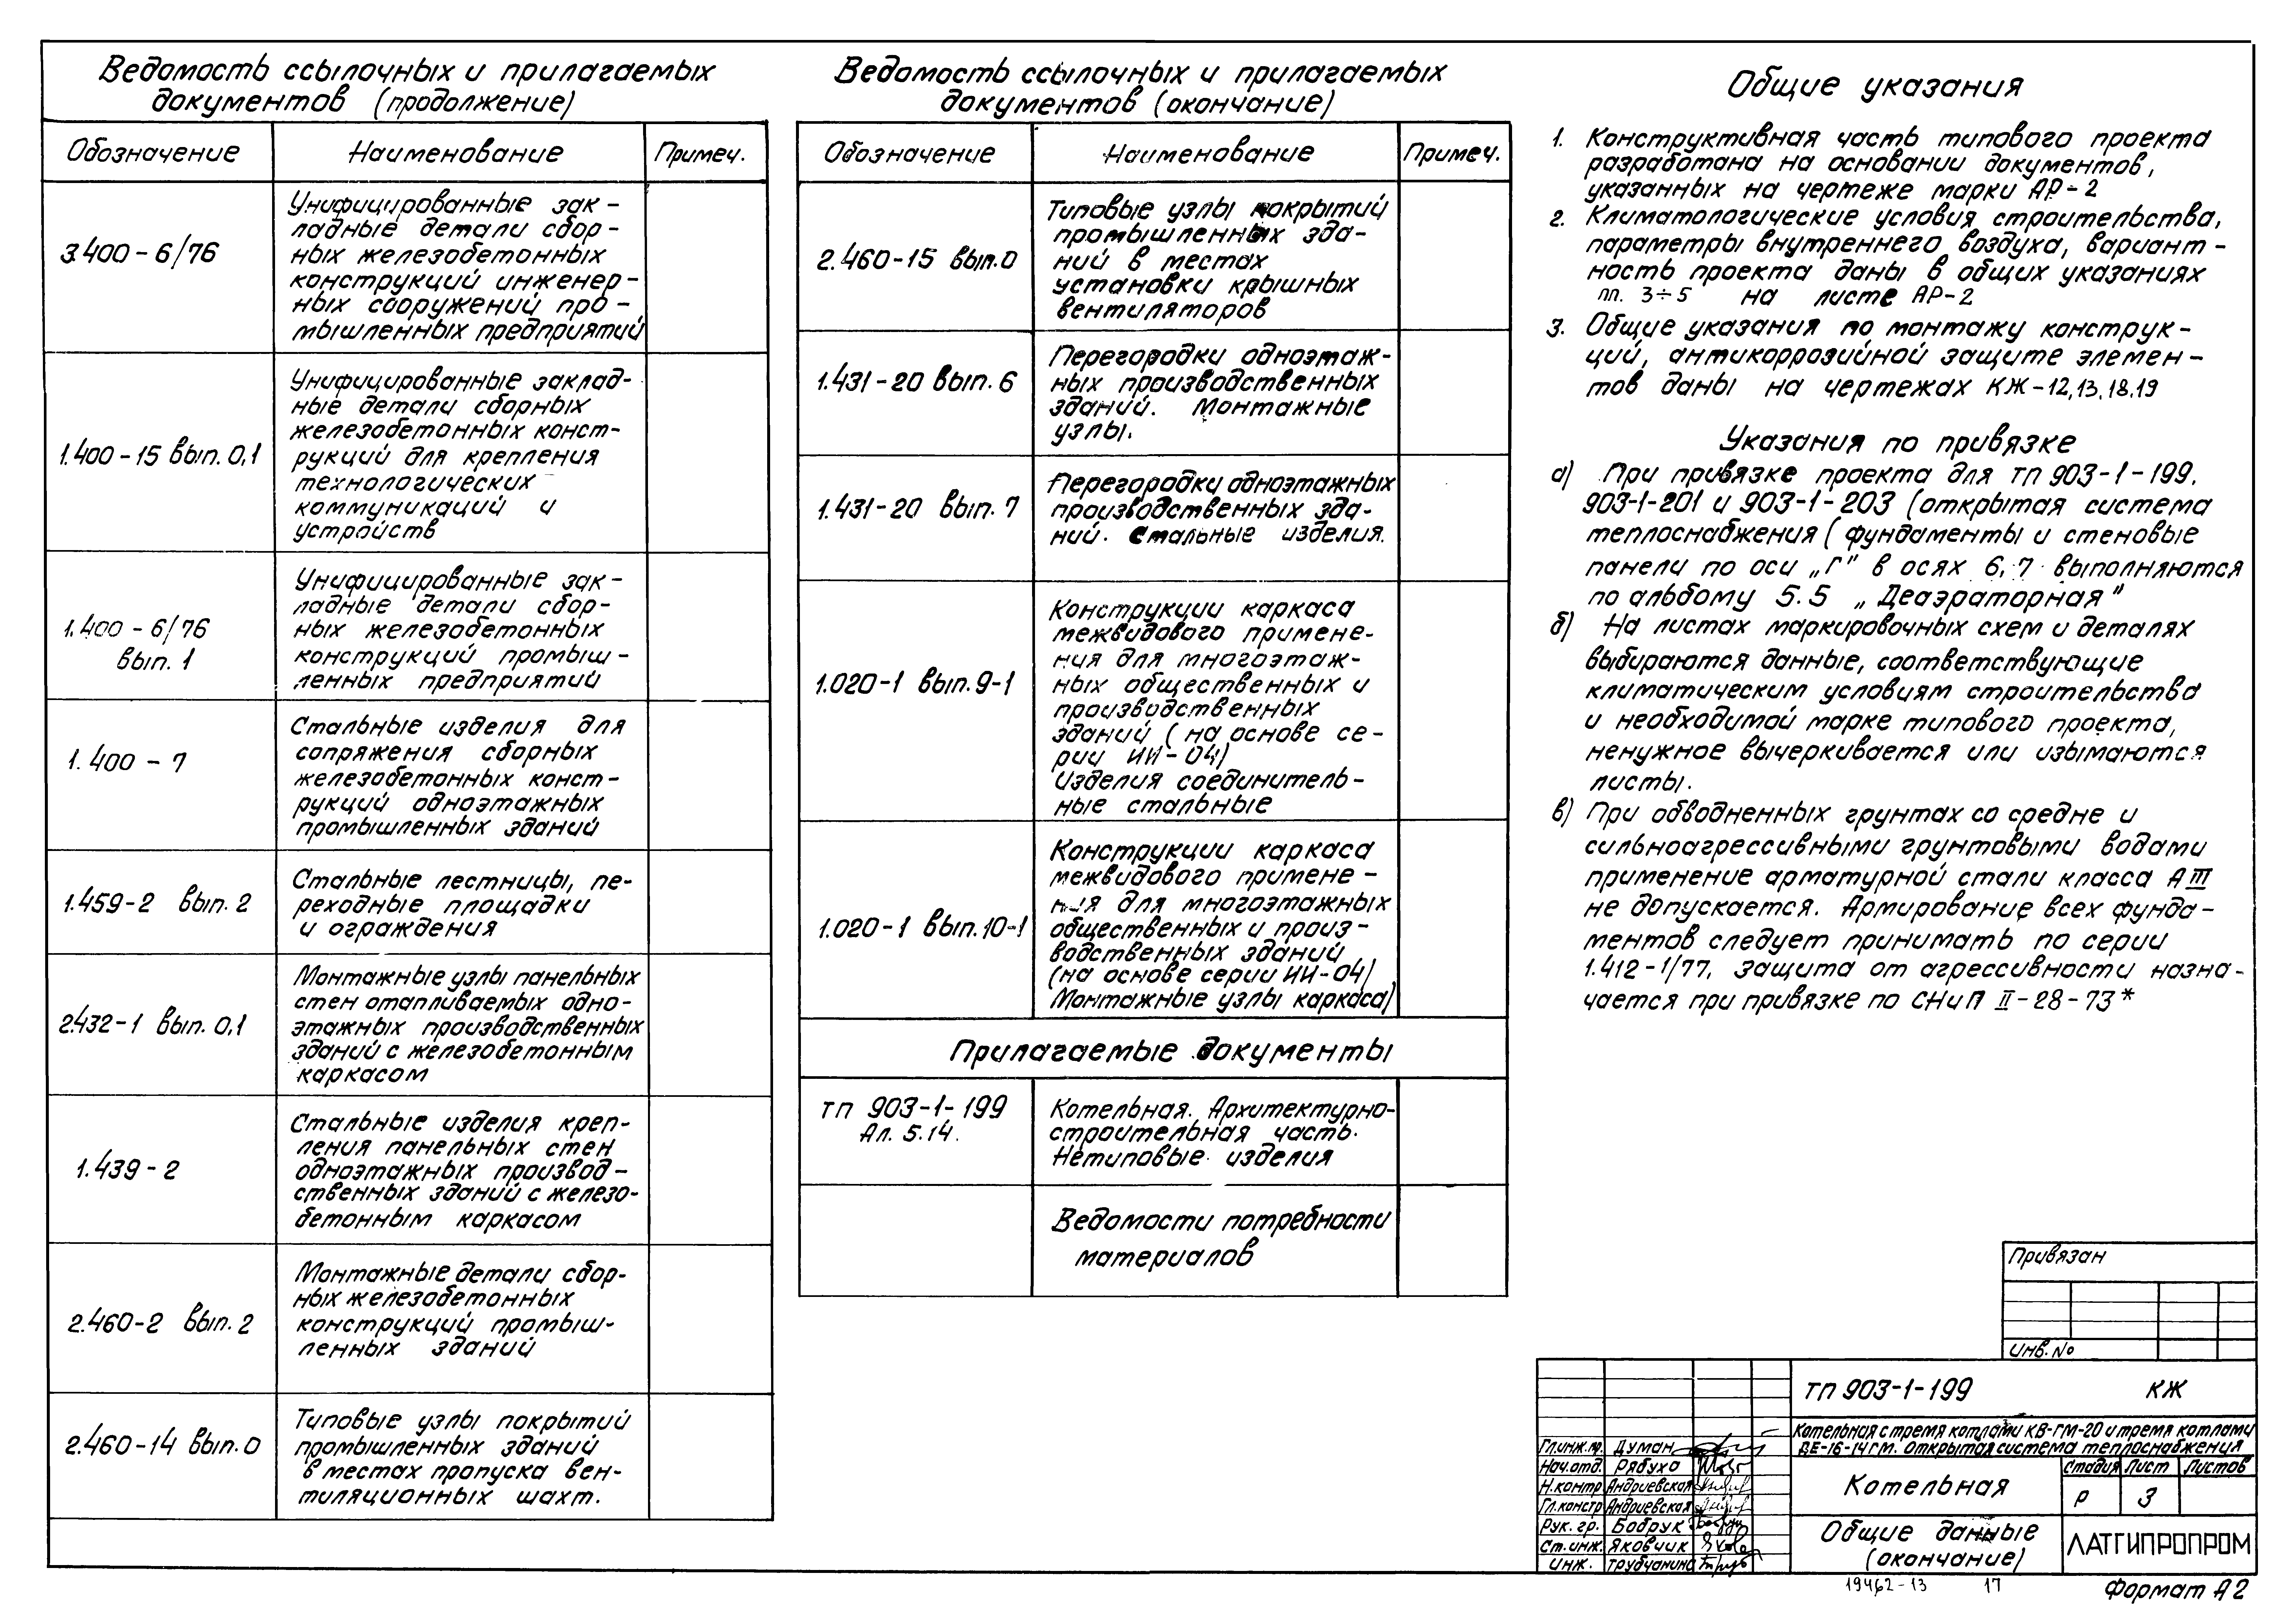 Ведомость ссылочных и прилагаемых
документов (продолжение)
Обозначение Наименование Примеч.
3.400-6/76
Унифицированные зак-
ладные детали сбор-
ных железобетонных
конструкций инженер-
ных сооружений про-
мышленных предприятий
1.400-15 вып. 0,1
Унифицированные заклад-
ные детали сборных
железобетонных конст-
рукций для крепления
технологических
коммуникаций и
устройств
1.400-6/76
вып. 1
Унифицированные зак-
ладные детали сбор-
ных железобетонных
конструкций промыш-
ленных предприятий
1.400-7
Стальные изделия для
сопряжения сборных
железобетонных конст-
рукций одноэтажных
промышленных зданий
1.459-2 вып. 2
Стальные лестницы, пе-
реходные площадки
и ограждения
2.432-1 вып. 0,1
Монтажные узлы панельных
стен отапливаемых одно-
этажных производственных
зданий с железобетонным
каркасом
1.439-2
Стальные изделия креп-
ления панельных стен
одноэтажных производ-
ственных зданий с железо-
бетонным каркасом
2.460-2 вып. 2
Монтажные детали сбор-
ных железобетонных
конструкций промыш-
ленных зданий
2.460-14 вып. 0
Типовые узлы покрытий
промышленных зданий
в местах пропуска вен-
тиляционных шахт.
Ведомость ссылочных и прилагаемых
документов (окончание)
Обозначение Наименование Примеч.
2.460-15 вып. 0
Типовые узлы покрытий
промышленных зда-
ний в местах
установки крышных
вентиляторов
1.431-20 вып. 6
Перегородки одноэтаж-
ных производственных
зданий. Монтажные
узлы.
1.431-20 вып. 7
Перегородки одноэтажных
производственных зда-
ний. Стальные изделия.
1.020-1 вып. 9-1
Конструкции каркаса
межвидового примене-
ния для многоэтаж-
ных общественных и
производственных
зданий (на основе се-
рии ИИ-04)
Изделия соединитель-
ные стальные
1.020-1 вып. 10-1
Конструкции каркаса
межвидового примене-
ния для многоэтажных
общественных и произ-
водственных зданий
(на основе серии ИИ-04)
Монтажные узлы каркаса)
Прилагаемые документы
тп 903-1-199
Ал. 5.14.
Котельная. Архитектурно-
строительная часть.
Нетиповые изделия
Ведомости потребности
материалов
Общие указания
1. Конструктивная часть типового проекта
разработана на основании документов,
указанных на чертеже марки АР-2
2. Климатологические условия строительства,
параметры внутреннего воздуха, вариант-
ность проекта даны в общих указаниях
пп. 3÷5 на листе АР-2
3. Общие указания по монтажу конструк-
ций, антикоррозийной защите элемен-
тов даны на чертежах КЖ-12,13,18,19
Указания по привязке
а) При привязке проекта для тп 903-1-199,
903-1-201 и 903-1-203 (открытая система
теплоснабжения ( фундаменты и стеновые
панели по оси „Г" в осях 6,7 выполняются
по альбому 5.5 „Деаэраторная"
б) На листах маркировочных схем и деталях
выбираются данные, соответствующие
климатическим условиям строительства
и необходимой марке типового проекта,
ненужное вычеркивается или изымаются
листы.
в) При обводненных грунтах со средне и
сильноагрессивными грунтовыми водами
применение арматурной стали класса АIII
не допускается. Армирование всех фунда-
ментов следует принимать по серии
1.412-1/77. Защита от агрессивности назна-
чается при привязке по СНиП II-28-73*
Привязан
Инв. №
тп 903-1-199 КЖ
Котельная с тремя котлами КВ-ГМ-20 и тремя котлами
ДЕ-16-14ГМ. Открытая система теплоснабжения
Гл.инж.пр. Думан
Нач.отд. Рябуха
Н.контр Андриевская
Гл.констр Андриевская
Рук. гр. Бобрук
Ст.инж. Яковчик
Инж. Трубчанина
Котельная
Стадия Лист Листов
Р 3
Общие данные
(окончание)
ЛАТГИПРОПРОМ
19462-13 17
Формат А2